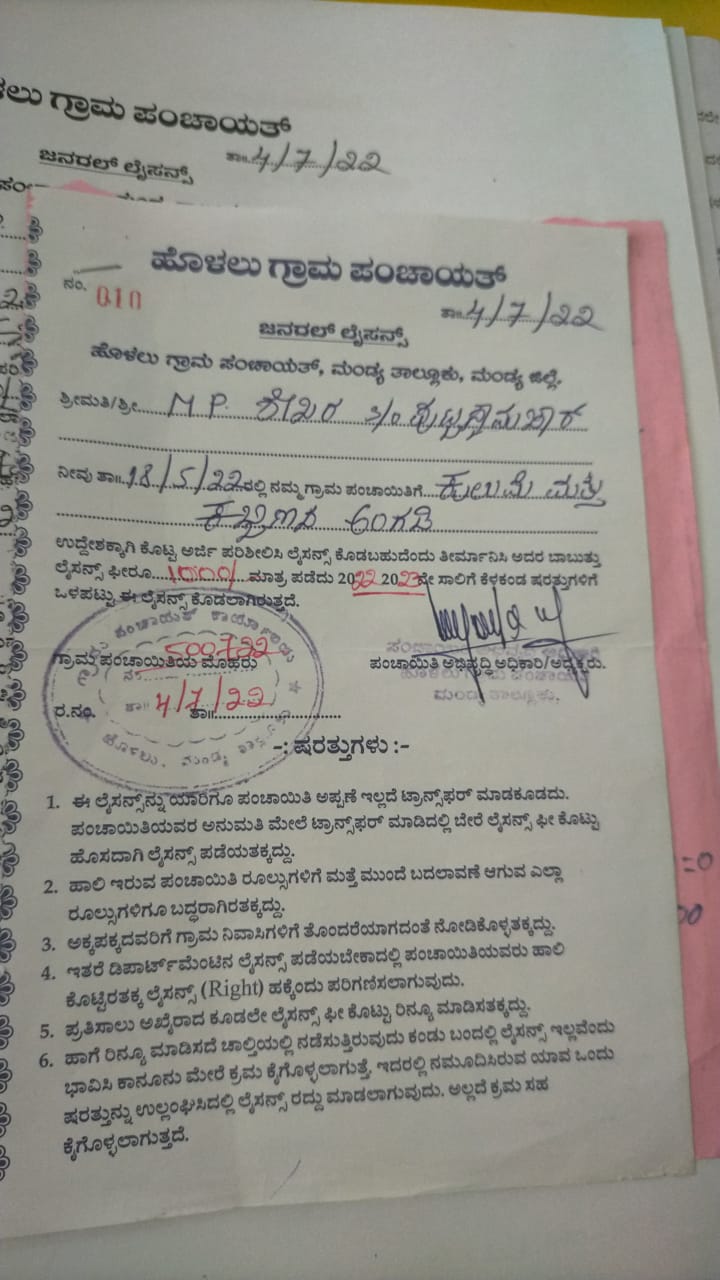 ಗ್ರಾಮ ಪಂಚಾಯತ್
ಜನರಲ್ ಲೈಸನ್ಸ್
ತಾ॥ 4/7/22
ಹೊಳಲು ಗ್ರಾಮ ಪಂಚಾಯತ್
ನಂ. 010
ತಾ॥ 4/7/22
ಜನರಲ್ ಲೈಸನ್ಸ್
ಹೊಳಲು ಗ್ರಾಮ ಪಂಚಾಯತ್, ಮಂಡ್ಯ ತಾಲ್ಲೂಕು, ಮಂಡ್ಯ ಜಿಲ್ಲೆ.
ಶ್ರೀಮತಿ/ಶ್ರೀ.... M P. ಶೇಖರ s/o
ನೀವು ತಾ॥ 18/5/22 ರಲ್ಲಿ ನಮ್ಮ ಗ್ರಾಮ ಪಂಚಾಯಿತಿಗೆ.... ಕುಲುಮೆ ಮತ್ತು
ಕಬ್ಬಿಣದ ಅಂಗಡಿ
ಉದ್ದೇಶಕ್ಕಾಗಿ ಕೊಟ್ಟ ಅರ್ಜಿ ಪರಿಶೀಲಿಸಿ ಲೈಸನ್ಸ್ ಕೊಡಬಹುದೆಂದು ತೀರ್ಮಾನಿಸಿ ಅದರ ಬಾಬುತ್ತು
ಲೈಸನ್ಸ್ ಫೀರೂ.... 1000/ ಮಾತ್ರ ಪಡೆದು 2022 2023ನೇ ಸಾಲಿಗೆ ಕೆಳಕಂಡ ಷರತ್ತುಗಳಿಗೆ
ಒಳಪಟ್ಟು ಈ ಲೈಸನ್ಸ್ ಕೊಡಲಾಗಿರುತ್ತದೆ.
ಗ್ರಾಮ ಪಂಚಾಯಿತಿಯ ಮೊಹರು
ಪಂಚಾಯಿತಿ ಅಭಿವೃದ್ಧಿ ಅಧಿಕಾರಿ/ಅಧ್ಯಕ್ಷರು.
ಮಂಡ್ಯ ತಾಲ್ಲೂಕು.
ರ.ನಂ. ತಾ॥ 4/7/22 ತಾ॥
-: ಷರತ್ತುಗಳು :-
1. ಈ ಲೈಸನ್ಸ್‌ನ್ನು ಯಾರಿಗೂ ಪಂಚಾಯಿತಿ ಅಪ್ಪಣೆ ಇಲ್ಲದೆ ಟ್ರಾನ್ಸ್‌ಫರ್ ಮಾಡಕೂಡದು.
ಪಂಚಾಯಿತಿಯವರ ಅನುಮತಿ ಮೇಲೆ ಟ್ರಾನ್ಸ್‌ಫರ್ ಮಾಡಿದಲ್ಲಿ ಬೇರೆ ಲೈಸನ್ಸ್ ಫೀ ಕೊಟ್ಟು
ಹೊಸದಾಗಿ ಲೈಸನ್ಸ್ ಪಡೆಯತಕ್ಕದ್ದು.
2. ಹಾಲಿ ಇರುವ ಪಂಚಾಯಿತಿ ರೂಲ್ಸುಗಳಿಗೆ ಮತ್ತೆ ಮುಂದೆ ಬದಲಾವಣೆ ಆಗುವ ಎಲ್ಲಾ
ರೂಲ್ಸುಗಳಿಗೂ ಬದ್ಧರಾಗಿರತಕ್ಕದ್ದು.
3. ಅಕ್ಕಪಕ್ಕದವರಿಗೆ ಗ್ರಾಮ ನಿವಾಸಿಗಳಿಗೆ ತೊಂದರೆಯಾಗದಂತೆ ನೋಡಿಕೊಳ್ಳತಕ್ಕದ್ದು.
4. ಇತರೆ ಡಿಪಾರ್ಟ್‌ಮೆಂಟಿನ ಲೈಸನ್ಸ್ ಪಡೆಯಬೇಕಾದಲ್ಲಿ ಪಂಚಾಯಿತಿಯವರು ಹಾಲಿ
ಕೊಟ್ಟಿರತಕ್ಕ ಲೈಸನ್ಸ್ (Right) ಹಕ್ಕೆಂದು ಪರಿಗಣಿಸಲಾಗುವುದು.
5. ಪ್ರತಿಸಾಲು ಅಖೈರಾದ ಕೂಡಲೇ ಲೈಸನ್ಸ್ ಫೀ ಕೊಟ್ಟು ರಿನ್ಯೂ ಮಾಡಿಸತಕ್ಕದ್ದು.
6. ಹಾಗೆ ರಿನ್ಯೂ ಮಾಡಿಸದೆ ಚಾಲ್ತಿಯಲ್ಲಿ ನಡೆಸುತ್ತಿರುವುದು ಕಂಡು ಬಂದಲ್ಲಿ ಲೈಸನ್ಸ್ ಇಲ್ಲವೆಂದು
ಭಾವಿಸಿ ಕಾನೂನು ಮೇರೆ ಕ್ರಮ ಕೈಗೊಳ್ಳಲಾಗುತ್ತೆ. ಇದರಲ್ಲಿ ನಮೂದಿಸಿರುವ ಯಾವ ಒಂದು
ಷರತ್ತುನ್ನು ಉಲ್ಲಂಘಿಸಿದಲ್ಲಿ ಲೈಸನ್ಸ್ ರದ್ದು ಮಾಡಲಾಗುವುದು. ಅಲ್ಲದೆ ಕ್ರಮ ಸಹ
ಕೈಗೊಳ್ಳಲಾಗುತ್ತದೆ.